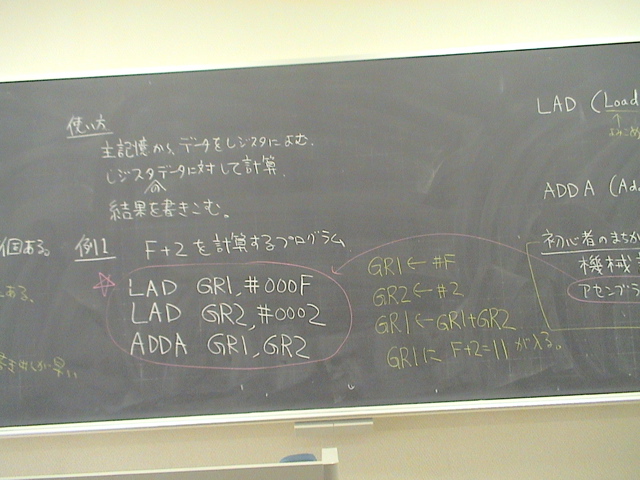 使い方
主記憶から、データをレジスタによむ.
レジスタデータに対して計算.
の
結果を書きこむ。
個ある。
例1 F+2を計算するプログラム
LAD GR1,#000F
LAD GR2,#0002
ADDA GR1,GR2
GR1←#F
GR2←#2
GR1←GR1+GR2
GR1に F+2=11 が入る。
ある、
LAD (Load
ADDA (Ad
初心者のまちが
機械
アセンブラ